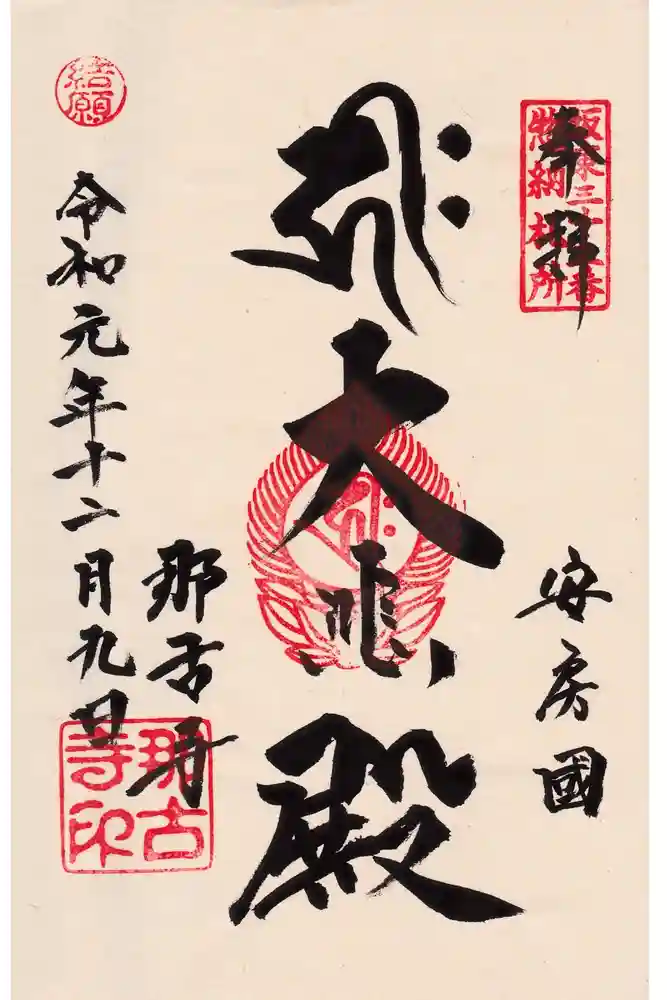 奉拝
坂東三十三番
惣納札所
安房國
大悲殿
那古寺
那古
寺印
令和元年十二月九日
結願